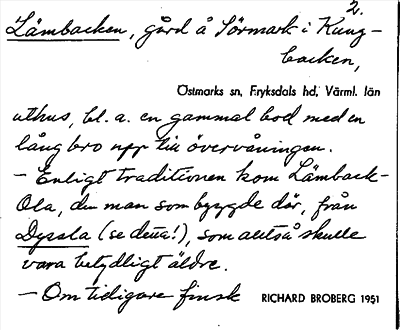 2.
Lämbacken, gård å Sörmark i Kung-
backen,
Östmarks sn, Fryksdals hd, Värml. län
uthus, bl. a. en gammal bod med en
lång bro upp till övervåningen.
- Enligt traditionen kom Lämback-
Ola, den man som byggde där, från
Dyssla (se detta!), som alltså skulle
vara betydligt äldre.
- Om tidigare finsk RICHARD BROBERG 1951